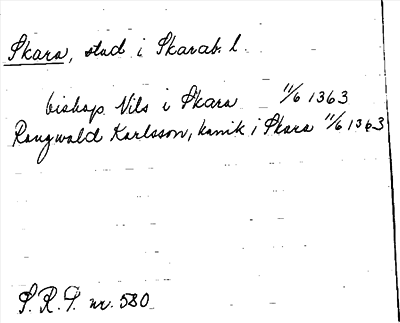 Skara, stad i Skarab. l.
biskop Nils i Skara 11/6 1363
Rangwald Karlsson, kanik i Skara 11/6 1363
S.R.P. nr. 580